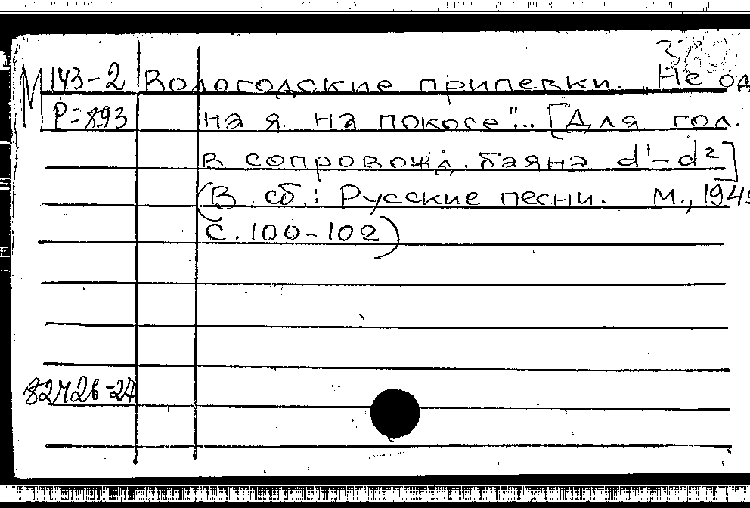 М143-2 Вологодские припевки. Не од
Р=893 на я на покосе"... [Для гол.
в сопровожд. баяна d¹-d²]
(В сб: Русские песни. М., 1949
С. 100-102)